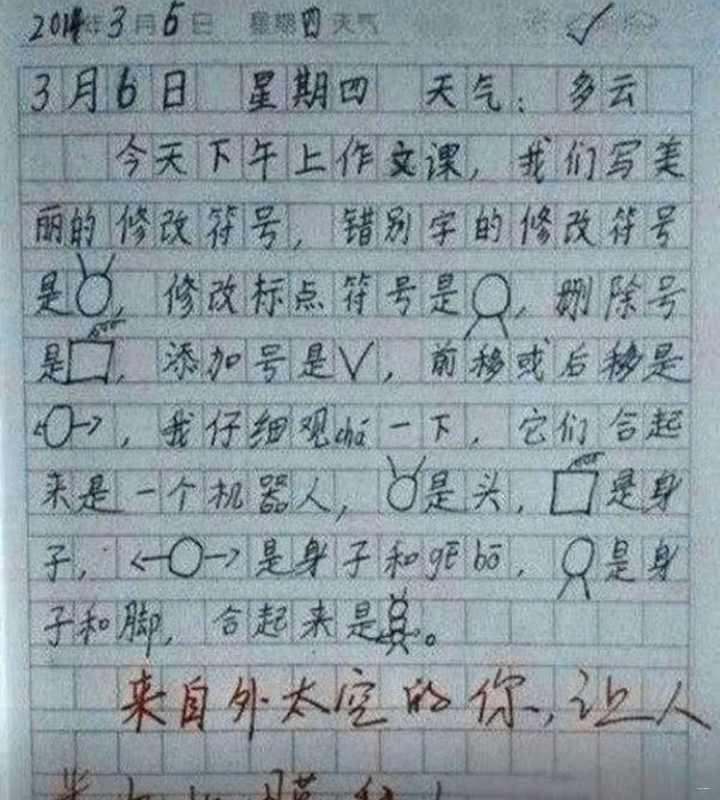 2014年3月6日 星期四天气
3月6日 星期四 天气：多云
今天下午上作文课，我们写美
丽的修改符号，错别字的修改符号
是，修改标点符号是，删除号
是，添加号是√，前移或后移是
，我仔细观chá一下，它们合起
来是一个机器人，是头，是身
子，是身子和gē bō，是身
子和脚，合起来是。
来自外太空的你，让人